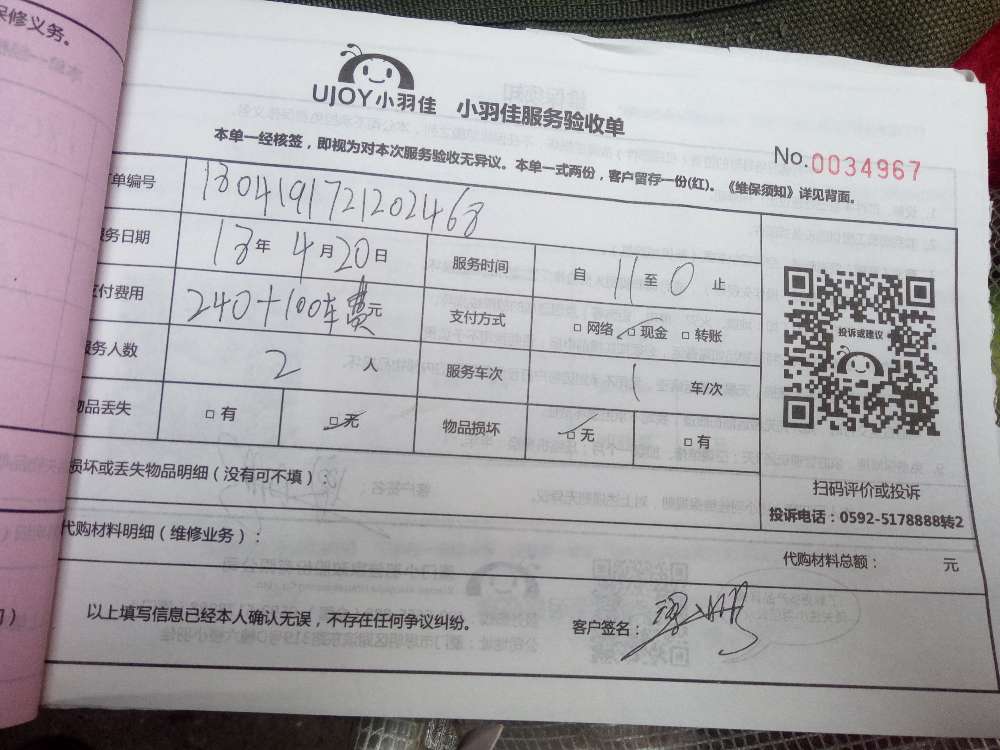 保修义务。
UJOY小羽佳 小羽佳服务验收单
No.0034967
本单一经核签，即视为对本次服务验收无异议。本单一式两份，客户留存一份(红)。《维保须知》详见背面。
单编号 1804191721202468
务日期 18年4月20日 服务时间 自 11 至 0 止
付费用 240+100车费元 支付方式 □网络 □现金 □转账
务人数 2 人 服务车次 1 车/次
物品丢失 □有 □无 物品损坏 □无 □有
投诉或建议
扫码评价或投诉
投诉电话：0592-5178888转2
损坏或丢失物品明细（没有可不填）：
代购材料明细（维修业务）： 代购材料总额： 元
以上填写信息已经本人确认无误，不存在任何争议纠纷。 客户签名：